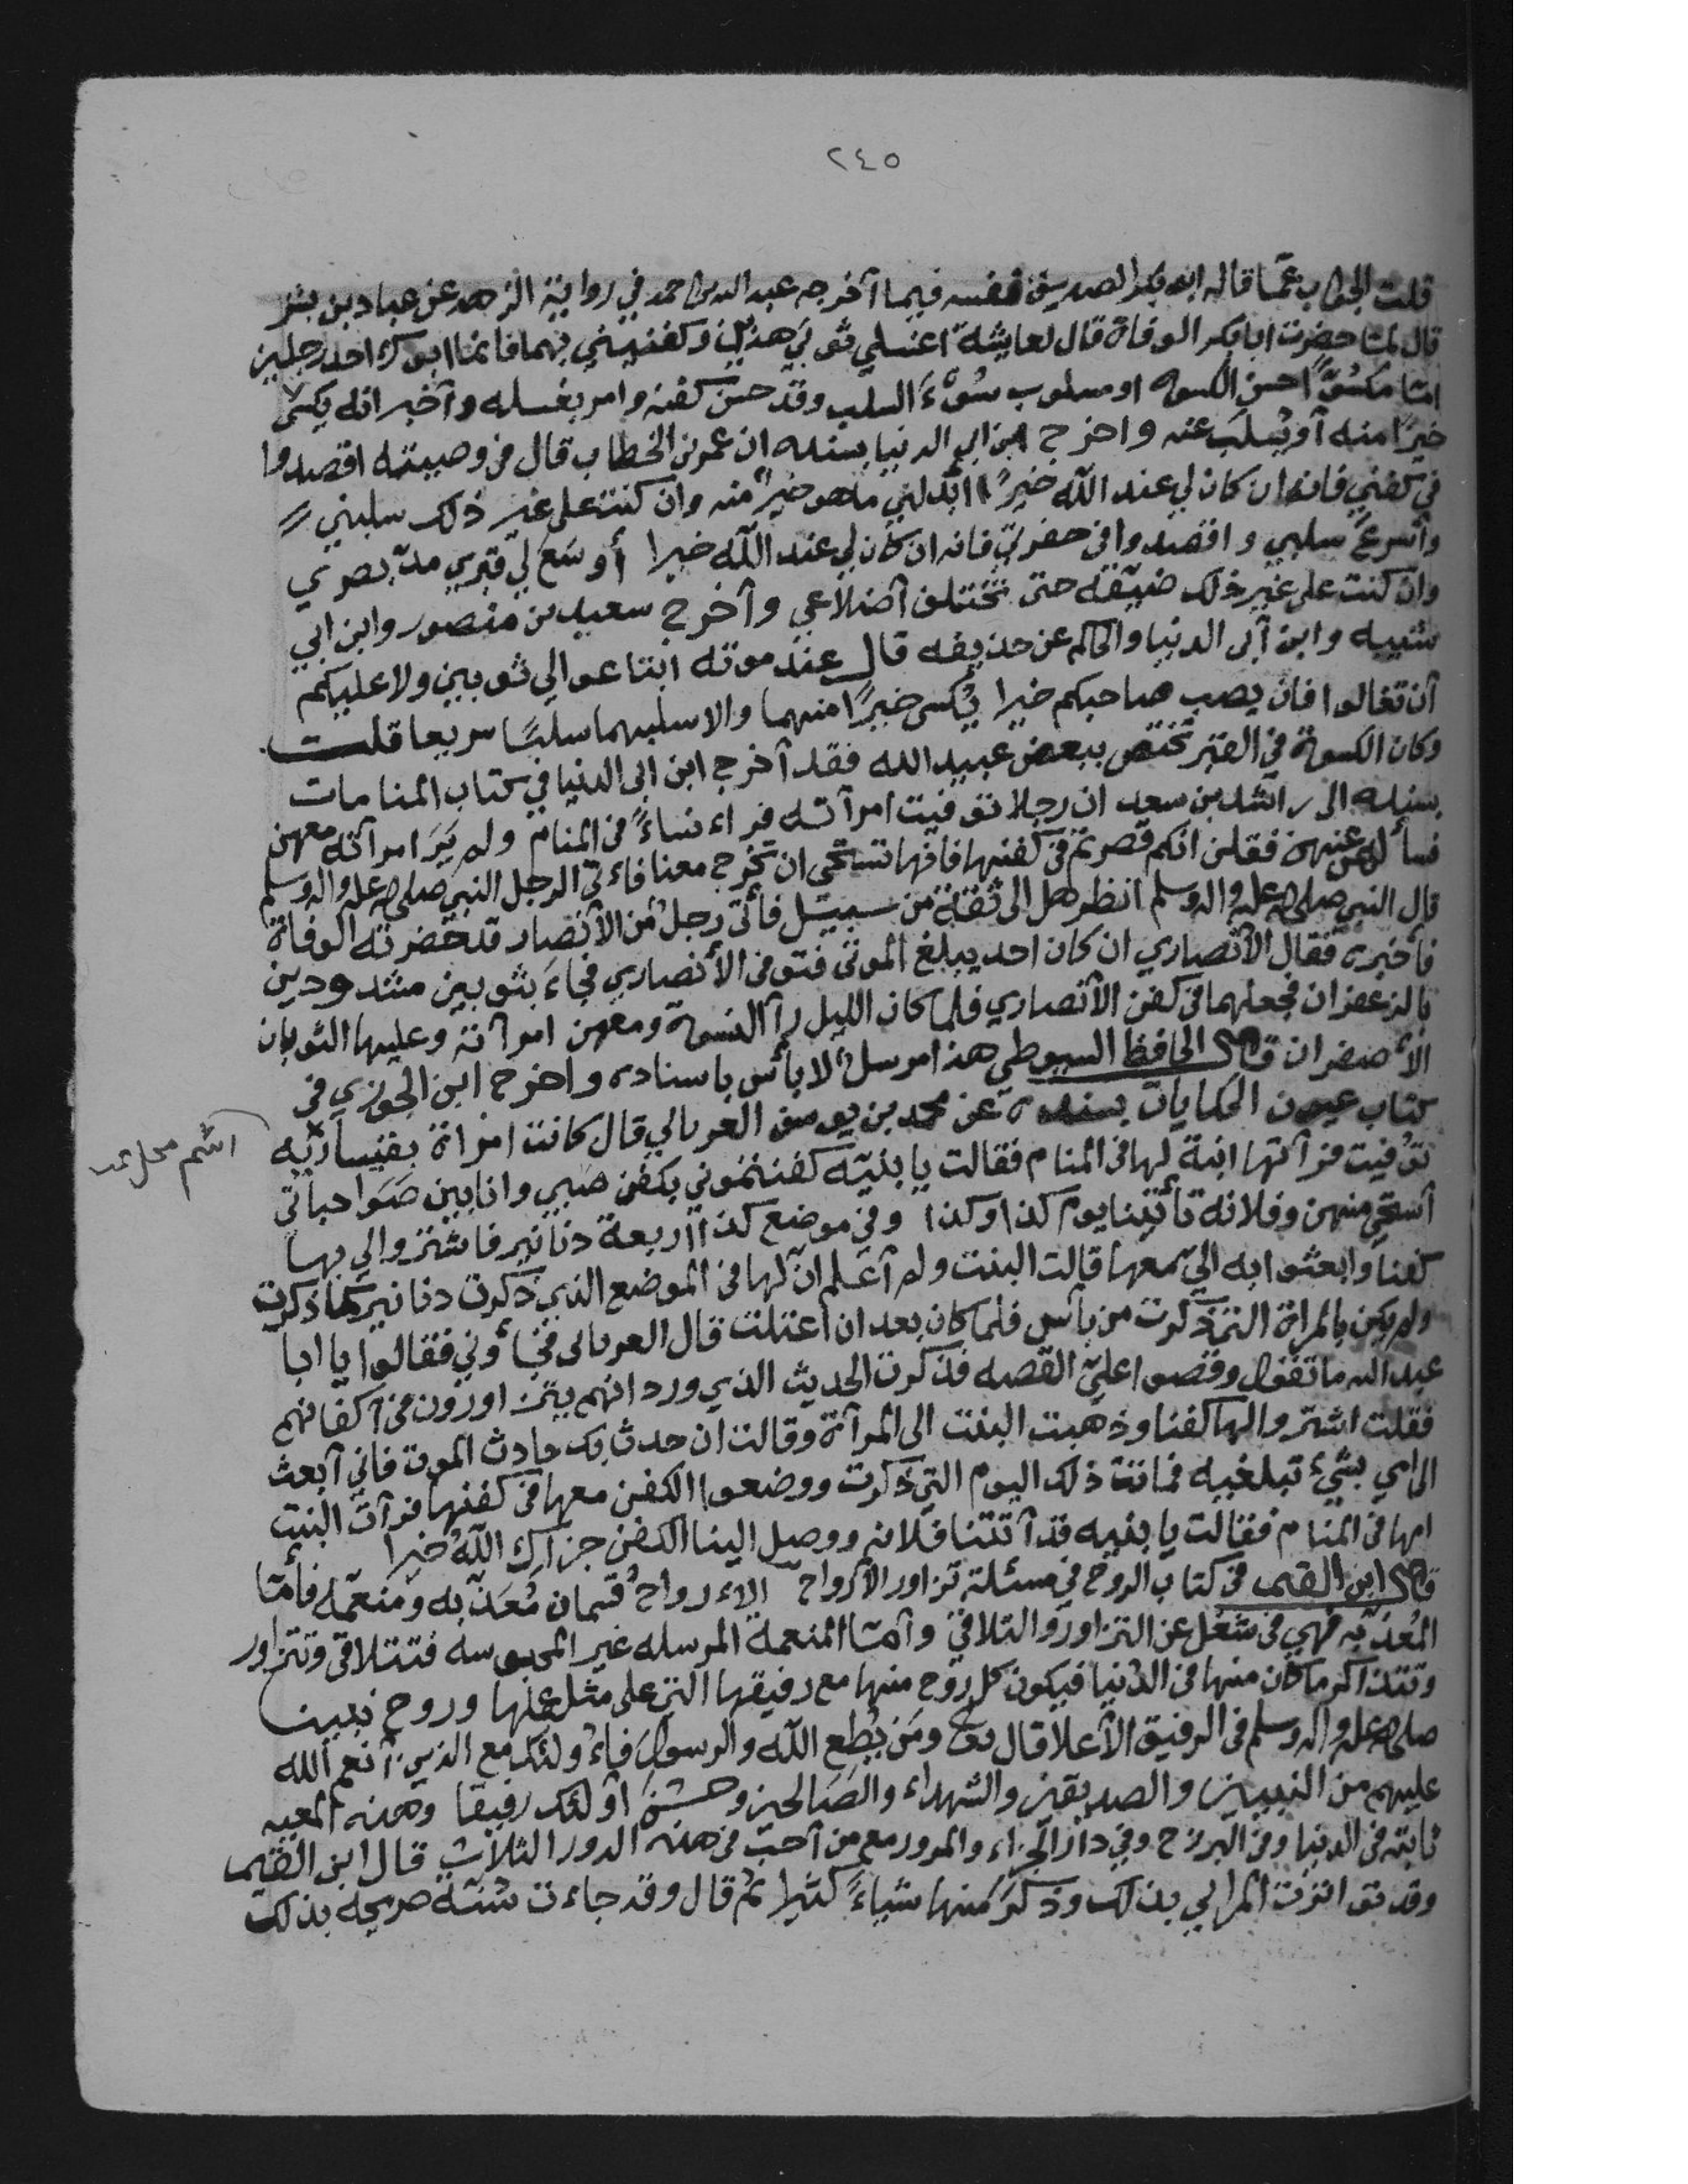 ٢٤٥
قلت الجواب عمّا قاله ابو بكر الصديق نفسه فيما آخرجه عبد الله بن احمد في رواية الزهد عن عباد بن بشر
قال لمّا حضرت ابا بكر الوفاة قال لعايشة اغسلي ثوبيَ هذين وكفنيني بهما فانما ابوك احد رجلين
امّا مكسوًّا احسن الكسوه او مسلوب سُوْءَ السلب وقد حسن كفنه وامر بغسله وآخبر انه يكسى
خيرًا منه آو يُسلَب عنه واخرج ابن ابي الدنيا بسنده ان عمر بن الخطاب قال في وصيبته اقصدوا
في كفني فانه ان كان لي عند الله خيرًا ابدلني ما هو خيرٌ منه وان كنت على غير ذلك سلبني
وآسرعَ سلبي واقصدوا في حفرتي فانه ان كان لي عند الله خيرا أوسَع لي قبري مدّ بصري
وان كنت على غير ذلك ضيّقه حتى تختلف آضلاعي وآخرج سعيد بن منصور وابن ابي
شيبه وابن آبي الدنيا والحاكم عن حذيفه قال عند موته ابتاعوا لي ثوبين ولا عليكم
آن تغالوا فان يصب صاحبكم خيرا يُكسى خيرًا منهما والا سلبهما سلبًا سريعا قلت
وكان الكسوة في القبر تختص ببعض عبيد الله فقد آخرج ابن ابي الدنيا في كتاب المنامات
بسنده الى راشد بن سعد ان رجلا توفيت امرآته فراء نساءً في المنام ولم يَرَ امرآته معهن
فسألهن عنها فقلن انكم قصرتم في كفنها فانها تستحي ان تخرج معنا فاءتى الرجل النبي صلى الله عليه واله وسلم
قال النبي صلى الله عليه واله وسلم انظر هل الى ثقة من سبيل فأتى رجلٌ من الأنصار قد حضرته الوفاة
فأخبره فقال الأنصاري ان كان احد يبلغ الموتى فتوفى الأنصاري فجاءَ بثوبين مشدودين
بالزعفران فجعلهما في كفن الآنصاري فلما كان الليل رآ النسوة ومعهن امرآته وعليها الثوبان
الأصفران قال الحافظ السيوطي هذا مرسلٌ لا بأس باسناده واخرج ابن الجوزي في
كتاب عيون الحكايات بسنده عن محمد بن يوسف العريالي قال كانت امراة بقيساريّه
توُفيت فرآتها ابنة لها في المنام فقالت يا بنيّه كفنتموني بكفن صبي وانا بين صَوَاحباتي
آستحي منهن وفلانة تأتينا يوم كذا وكذا وفي موضع كذا اربعة دنانير فاشتروا لي بها
كفنا وابعثوا به اليّ معها قالت البنت ولم آعلم انّ لها في الموضع الذي ذكرت دنانير كما ذكرت
ولم يكن بالمراة التي ذكرت من بآس فلما كان بعد ان اعتلت قال العريالي فجاؤني فقالوا يا ابا
عبد الله ما تقول وقصوا عليّ القصه فذكرت الحديث الذي ورد انهم يتزاورون في آكفانهم
فقلت اشتروا لها كفنا وذهبت البنت الى المرآة وقالت ان حدث بك حادث الموت فاني آبعث
الى امي بشيء تبلغيه فماتت ذلك اليوم التي ذكرت ووضعوا الكفن معها في كفنها فرآت البنت
امها في المنام فقالت يا بنيه قد آتتنا فلانه ووصل الينا الكفن جزاك الله خيرا
قال ابن القيم في كتاب الروح في مسئلة تزاور الآرواح الاءرواحُ قسمان مُعَذّبه ومنعمه فأمّا
المُعذبه فهي في شغل عن التزاور والتلاقي وآمّا المنعمة المرسله غير المحبوسه فتتلاقى وتتزاور
وتتذاكر ما كان منها في الدنيا فيكون كل روح منها مع رفيقها التي على مثل عملها وروح نبينا
صلى الله عليه واله وسلم في الرفيق الآعلا قال تعالى ومَن يُطِع اللّه والرسول فاءولئك مع الذين آنعم الله
عليهم من النبيين والصديقين والشهداء والصَالحين وحسُن آولئك رفيقا وهذه المعيه
ثابته في الدنيا وفي البرزخ وفي دار الجزاء والمرور مع من آحبّ في هذه الدور الثلاث قال ابن القيم
وقد تواترت المرائي بذلك وذكرَ منها شياءً كثيرا ثم قال وقد جاءت سُنّة صريحة بذلك